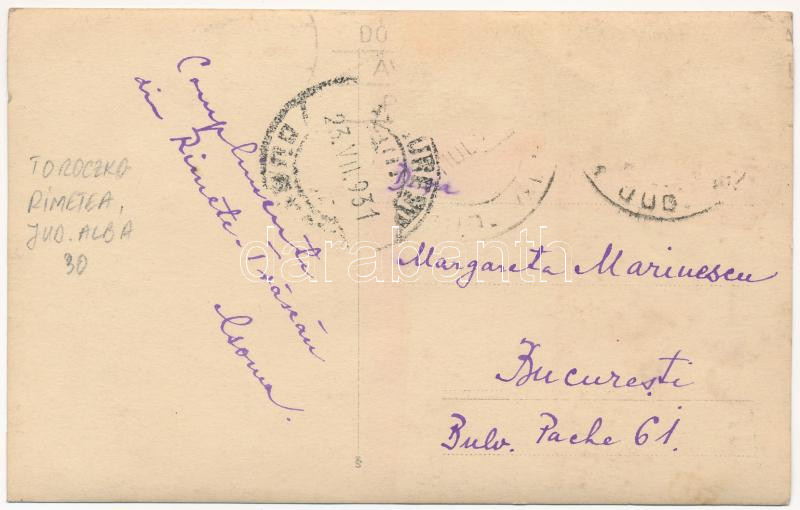 TOROCZKO
RIMETEA,
JUD. ALBA
30
Complimente
din Rimetea-Trăscău
DO
23.VII.931
BUCUREȘTI
JUD.
D-na
Margareta Marinescu
București
Bulv. Pache 61.
darabanth